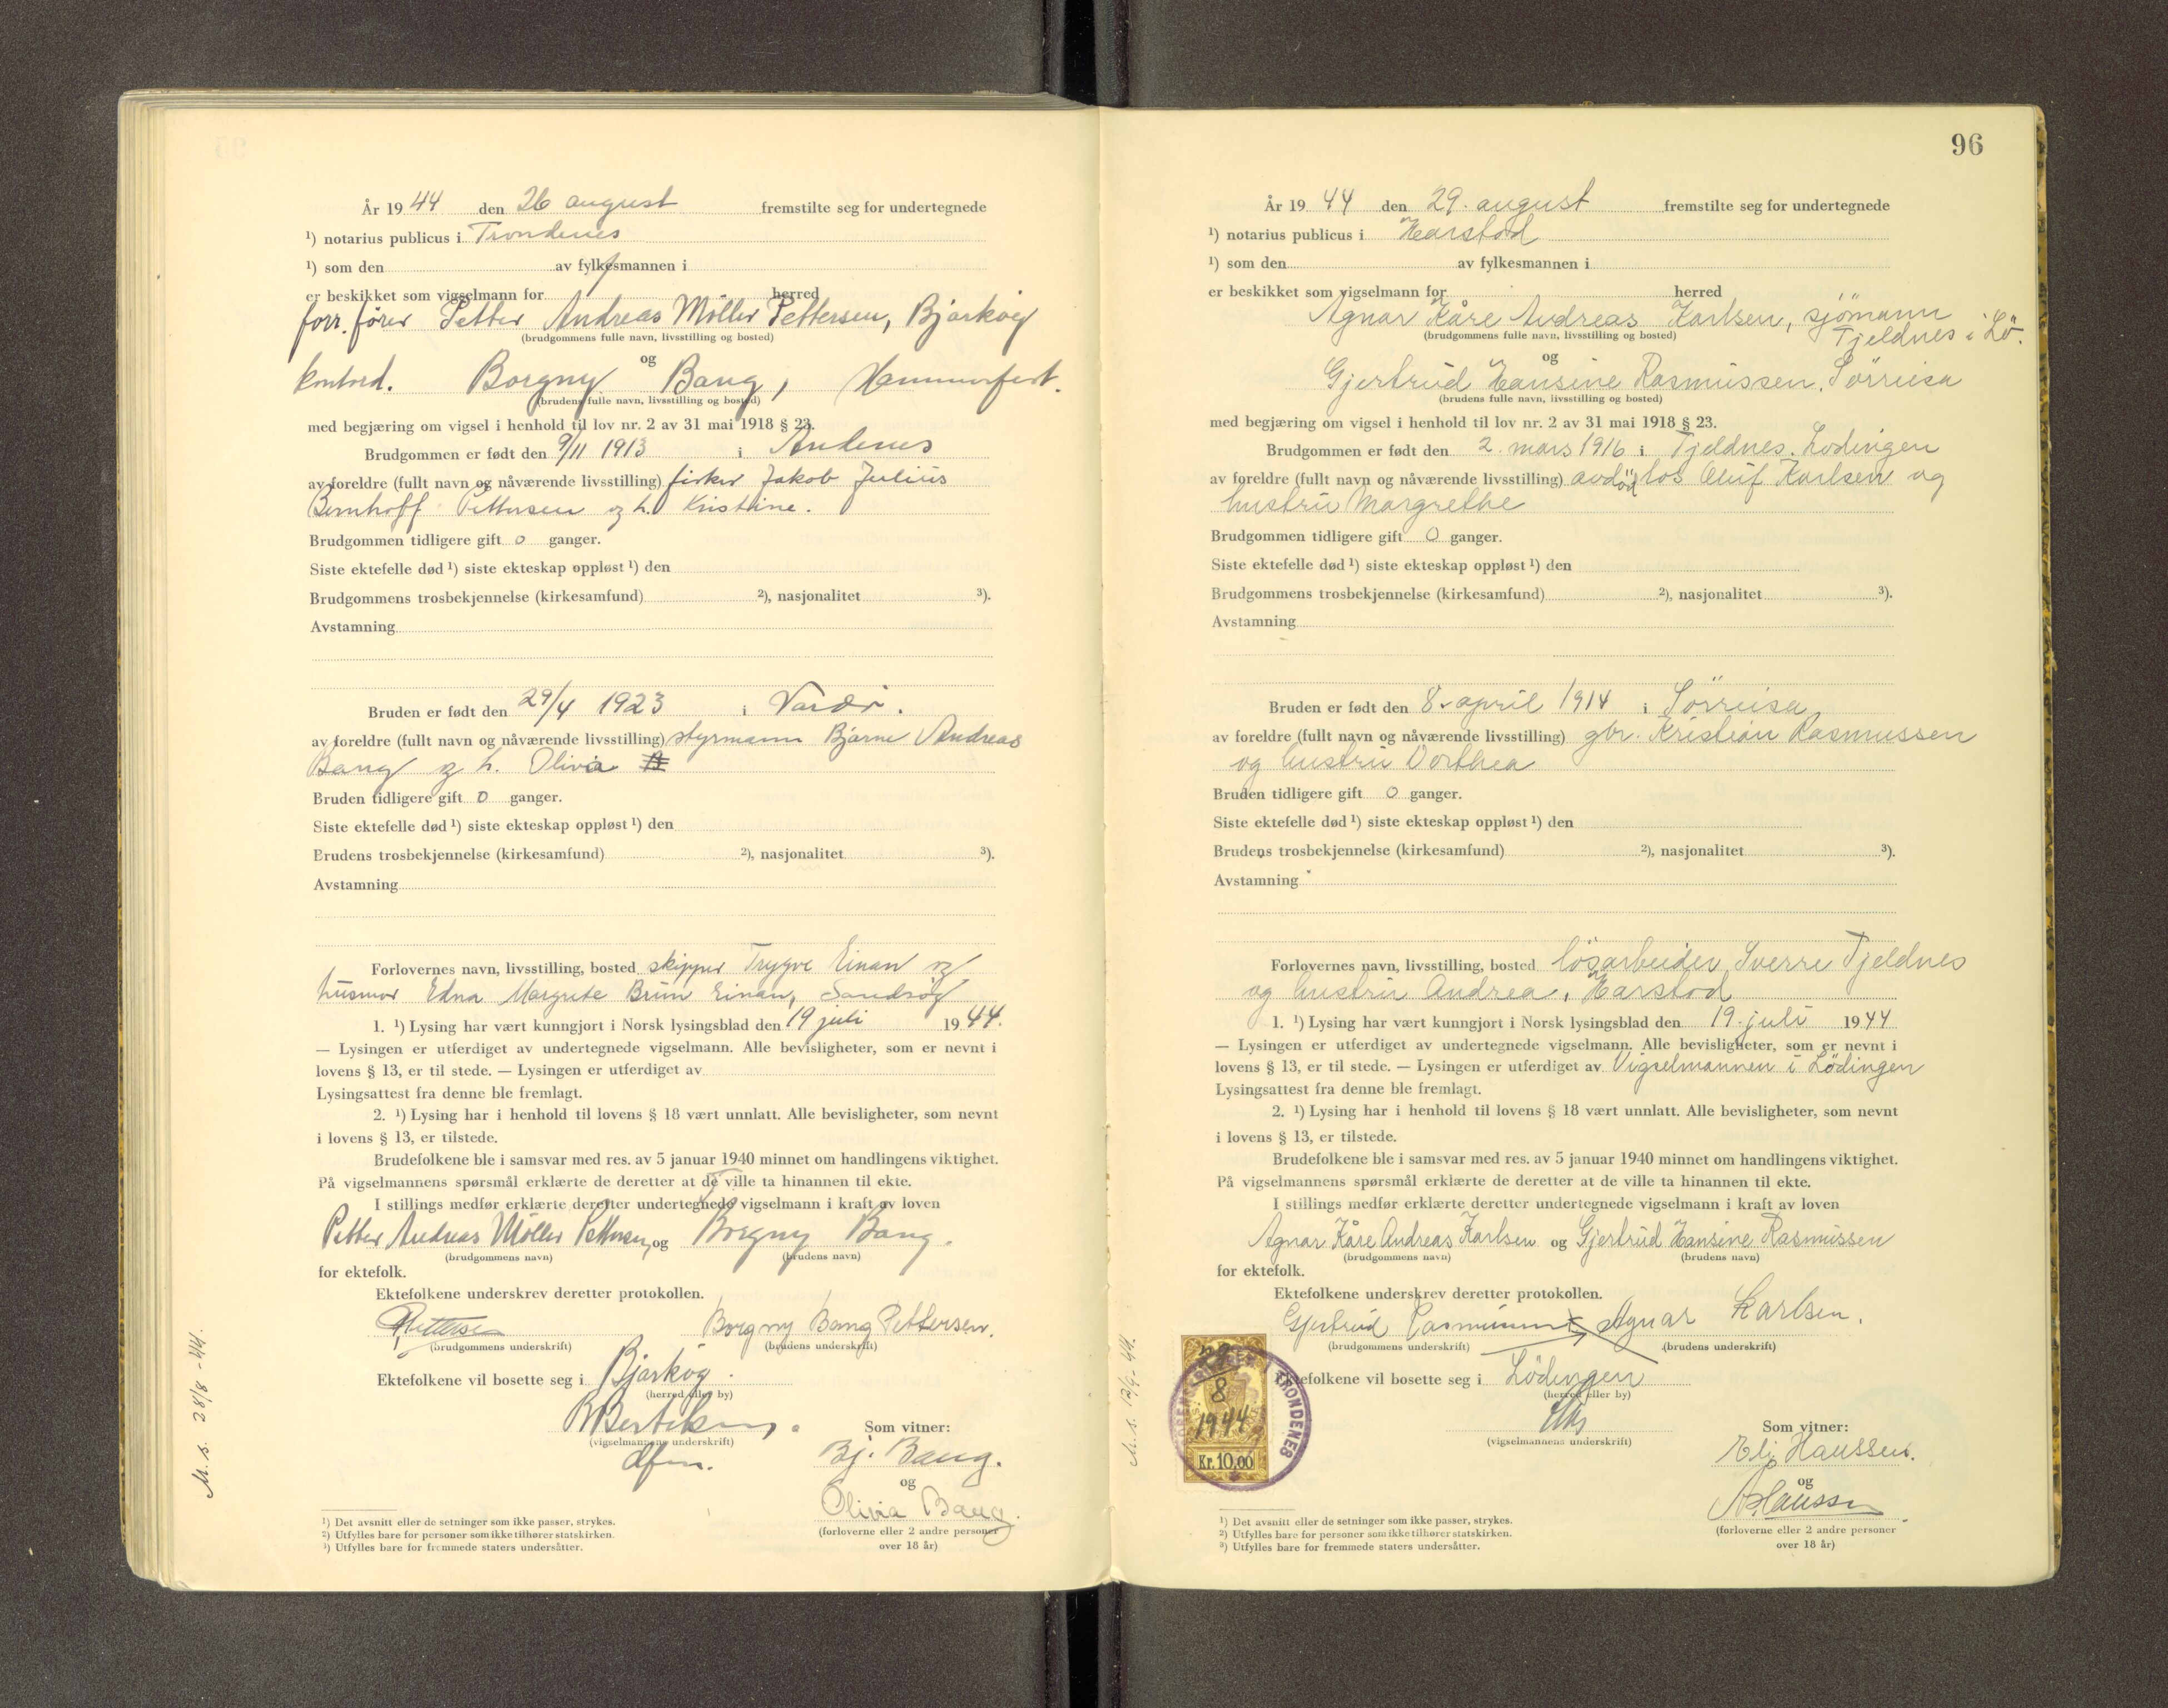 År 19 44 den 26 august fremstilte seg for undertegnede
¹) notarius publicus i Trondenes
¹) som den av fylkesmannen i
er beskikket som vigselmann for herred
forr. fører Petter Andreas Möller Pettersen, Bjarkøy
(brudgommens fulle navn, livsstilling og bosted)
og
kontord. Borgny Bang, Hammerfest.
(brudens fulle navn, livsstilling og bosted)
med begjæring om vigsel i henhold til lov nr. 2 av 31 mai 1918 § 23.
Brudgommen er født den 9/11 1913 i Andenes
av foreldre (fullt navn og nåværende livsstilling) fisker Jakob Julius
Bernhoff Pettersen og h. Kristine.
Brudgommen tidligere gift 0 ganger.
Siste ektefelle død ¹) siste ekteskap oppløst ¹) den
Brudgommens trosbekjennelse (kirkesamfund) ²), nasjonalitet ³).
Avstamning
Bruden er født den 29/4 1923 i Vardø.
av foreldre (fullt navn og nåværende livsstilling) styrmann Bjarne Andreas
Bang og h. Olivia
Bruden tidligere gift 0 ganger.
Siste ektefelle død ¹) siste ekteskap oppløst ¹) den
Brudens trosbekjennelse (kirkesamfund) ²), nasjonalitet ³).
Avstamning
Forlovernes navn, livsstilling, bosted skipper Trygve Einan og
husmor Edna Margrete Brun Einan, Sandsøy
1. ¹) Lysing har vært kunngjort i Norsk lysingsblad den 19 juli 19 44.
— Lysingen er utferdiget av undertegnede vigselmann. Alle bevisligheter, som er nevnt i
lovens § 13, er til stede. — Lysingen er utferdiget av
Lysingsattest fra denne ble fremlagt.
2. ¹) Lysing har i henhold til lovens § 18 vært unnlatt. Alle bevisligheter, som nevnt
i lovens § 13, er tilstede.
Brudefolkene ble i samsvar med res. av 5 januar 1940 minnet om handlingens viktighet.
På vigselmannens spørsmål erklærte de deretter at de ville ta hinannen til ekte.
I stillings medfør erklærte deretter undertegnede vigselmann i kraft av loven
Petter Andreas Möller Pettersen, og Borgny Bang.
(brudgommens navn) (brudens navn)
for ektefolk.
Ektefolkene underskrev deretter protokollen.
Pettersen Borgny Bang Pettersen.
(brudgommens underskrift) (brudens underskrift)
Ektefolkene vil bosette seg i Bjarkøy.
(herred eller by)
(vigselmannens underskrift)
dfm.
Som vitner:
Bj. Bang.
og
Olivia Bang.
(forloverne eller 2 andre personer
over 18 år)
M. s. 28/8 -44.
¹) Det avsnitt eller de setninger som ikke passer, strykes.
²) Utfylles bare for personer som ikke tilhører statskirken.
³) Utfylles bare for fremmede staters undersåtter.
96
År 19 44 den 29. august fremstilte seg for undertegnede
¹) notarius publicus i Harstad
¹) som den av fylkesmannen i
er beskikket som vigselmann for herred
Agnar Kåre Andreas Karlsen, sjömann
Tjeldnes i Lö.
(brudgommens fulle navn, livsstilling og bosted)
og
Gjertrud Hansine Rasmussen, Sörreisa
(brudens fulle navn, livsstilling og bosted)
med begjæring om vigsel i henhold til lov nr. 2 av 31 mai 1918 § 23.
Brudgommen er født den 2. mars 1916 i Tjeldnes. Lodingen
av foreldre (fullt navn og nåværende livsstilling) avdöd los Oluf Karlsen og
hustru Margrethe
Brudgommen tidligere gift 0 ganger.
Siste ektefelle død ¹) siste ekteskap oppløst ¹) den
Brudgommens trosbekjennelse (kirkesamfund) ²), nasjonalitet ³).
Avstamning
Bruden er født den 8. april 1914 i Sörreisa
av foreldre (fullt navn og nåværende livsstilling) gbr. Kristian Rasmussen
og hustru Dorthea
Bruden tidligere gift 0 ganger.
Siste ektefelle død ¹) siste ekteskap oppløst ¹) den
Brudens trosbekjennelse (kirkesamfund) ²), nasjonalitet ³).
Avstamning
Forlovernes navn, livsstilling, bosted lösarbeider Sverre Tjeldnes
og hustru Andrea, Harstad
1. ¹) Lysing har vært kunngjort i Norsk lysingsblad den 19. juli 19 44
— Lysingen er utferdiget av undertegnede vigselmann. Alle bevisligheter, som er nevnt i
lovens § 13, er til stede. — Lysingen er utferdiget av Vigselmannen i Lödingen
Lysingsattest fra denne ble fremlagt.
2. ¹) Lysing har i henhold til lovens § 18 vært unnlatt. Alle bevisligheter, som nevnt
i lovens § 13, er tilstede.
Brudefolkene ble i samsvar med res. av 5 januar 1940 minnet om handlingens viktighet.
På vigselmannens spørsmål erklærte de deretter at de ville ta hinannen til ekte.
I stillings medfør erklærte deretter undertegnede vigselmann i kraft av loven
Agnar Kåre Andreas Karlsen og Gjertrud Hansine Rasmussen
(brudgommens navn) (brudens navn)
for ektefolk.
Ektefolkene underskrev deretter protokollen.
Gjertrud Rasmussen Agnar Karlsen.
(brudgommens underskrift) (brudens underskrift)
Ektefolkene vil bosette seg i Lödingen
(herred eller by)
(vigselmannens underskrift)
Som vitner:
Eli Hanssen.
og
Hanssen
(forloverne eller 2 andre personer
over 18 år)
29
8
1944
Kr. 10,00
TRONDENES
M. s. 12/9-44.
¹) Det avsnitt eller de setninger som ikke passer, strykes.
²) Utfylles bare for personer som ikke tilhører statskirken.
³) Utfylles bare for fremmede staters undersåtter.